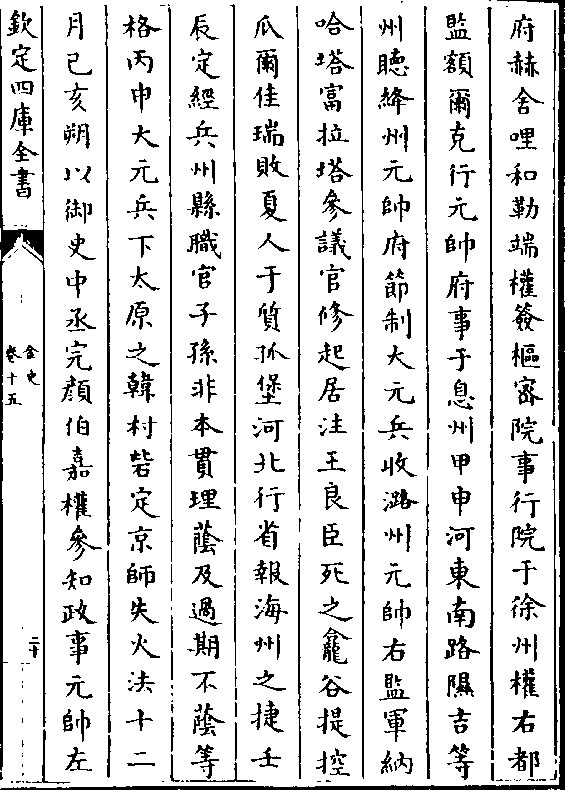 府赫舍哩和勒端權簽樞密院事行院于徐州權右都
監額爾克行元帥府事于息州甲申河東南路隰吉等
州聽絳州元帥府節制大元兵收潞州元帥右監軍納
哈塔富拉塔參議官修起居注王良臣死之龕谷提控
瓜爾佳瑞敗夏人于質孤堡河北行省報海州之捷壬
辰定經兵州縣職官子孫非本貫理蔭及過期不蔭等
格丙申大元兵下太原之韓村砦定京師失火法十二
月己亥朔以御史中丞完顔伯嘉權參知政事元帥左
欽定四庫全書
金史
卷十五
二十